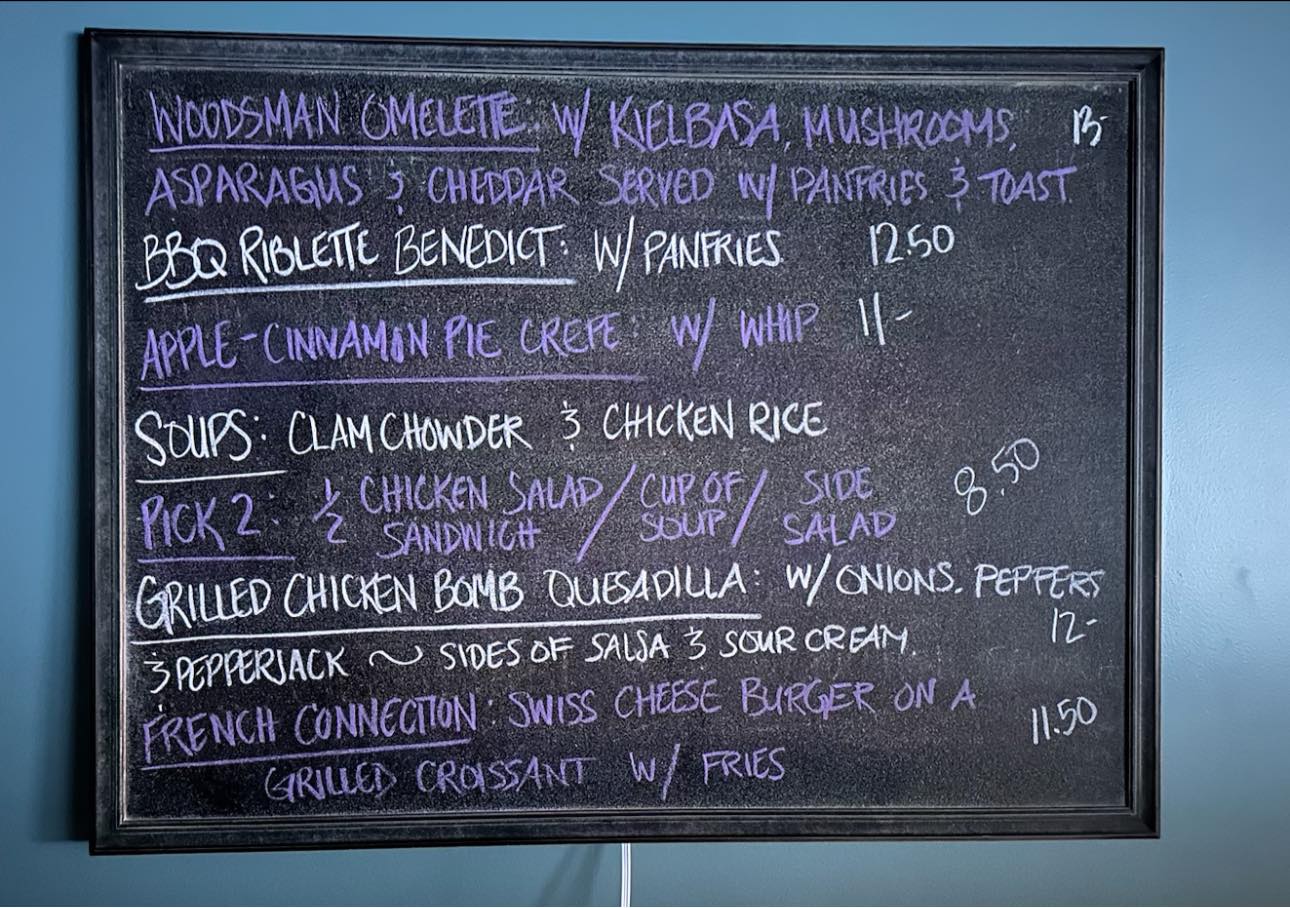 WOODSMAN OMELETTE: W/ KIELBASA, MUSHROOMS, 13-
ASPARAGUS & CHEDDAR SERVED W/ PANFRIES & TOAST.
BBQ RIBLETTE BENEDICT: W/ PANFRIES. 12.50
APPLE-CINNAMON PIE CREPE: W/ WHIP 11-
SOUPS: CLAM CHOWDER & CHICKEN RICE
PICK 2: ½ CHICKEN SALAD / CUP OF / SIDE 8.50
SANDWICH / SOUP / SALAD
GRILLED CHICKEN BOMB QUESADILLA: W/ ONIONS. PEPPERS
& PEPPERJACK ~ SIDES OF SALSA & SOUR CREAM. 12-
FRENCH CONNECTION: SWISS CHEESE BURGER ON A 11.50
GRILLED CROISSANT W/ FRIES